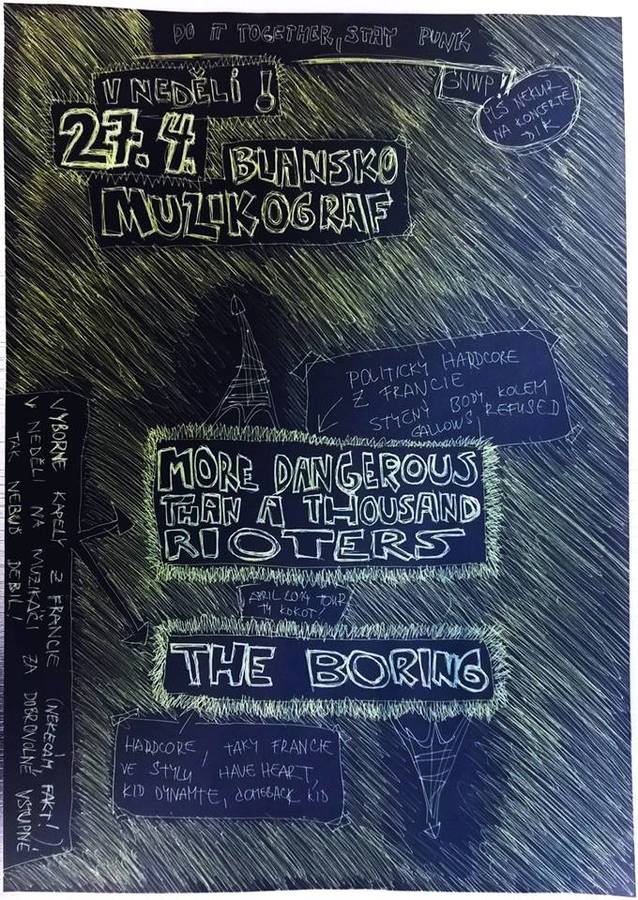 DO IT TOGETHER, STAY PUNK
V NEDĚLI!
27. 4.
BLANSKO
MUZIKOGRAF
GNWP!!
NEKUR
NA KONCERTĚ
DÍK
POLITICKÝ HARDCORE
Z FRANCIE
STYČNÝ BODY KOLEM
GALLOWS, REFUSED
MORE DANGEROUS
THAN A THOUSAND
RIOTERS
APRIL 2014 TOUR
TY KOKOT!
THE BORING
HARDCORE, TAKY FRANCIE
VE STYLU HAVE HEART,
KID DYNAMITE, COMEBACK KID
VÝBORNÉ KAPELY Z FRANCIE (NEKECÁM, FAKT!)
V NEDĚLI NA MUZIKÁČI ZA DOBROVOLNÉ VSTUPNÉ
TAK NEBUĎ DEBIL!